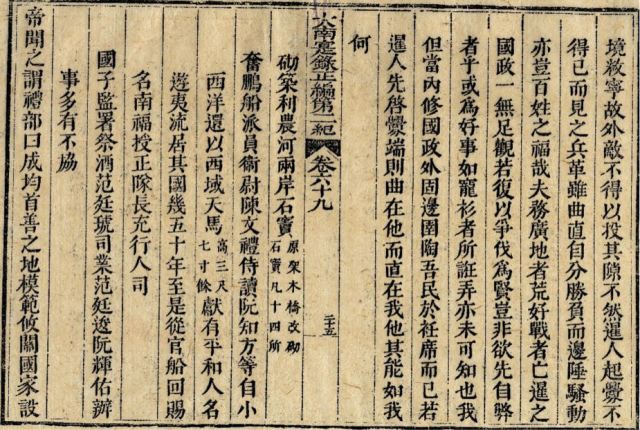 境敉寧故外敵不得以投其隙不然暹人起釁不
得已而見之兵革雖曲直自分勝負而邊陲騷動
亦豈百姓之福哉夫務廣地者荒好戰者亡暹之
國政一無足觀若復以爭伐爲賢豈非欲先自弊
者乎或爲好事如寵衫者所誑弄亦未可知也我
但當內修國政外固邊圉陶吾民於袵席而已若
暹人先啓釁端則曲在他而直在我他其能如我
何
大南寔錄正編第二紀 卷六十九 二十五
砌築利農河兩岸石竇 原架木橋改砌石竇凡十四所
奮鵬船派員衞尉陳文禮侍讀阮知方等自小
西洋還以西域天馬 高三尺七寸餘 獻有平和人名
遊夷流居其國幾五十年至是從官船回賜
名南福授正隊長充行人司
國子監署祭酒范廷琥司業范廷逡阮輝佑辦
事多有不協
帝聞之謂禮部曰成均首善之地模範攸關國家設